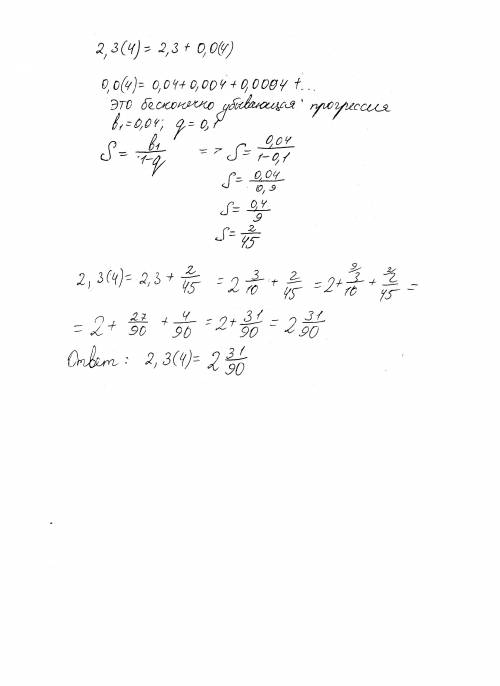 2,3(4) = 2,3 + 0,0(4)
0,0(4) = 0,04 + 0,004 + 0,0004 + ...
это бесконечно убывающая прогрессия
b₁ = 0,04; q = 0,1
S = b₁/(1-q) => S = 0,04/(1-0,1)
S = 0,04/0,9
S = 0,4/9
S = 2/45
2,3(4) = 2,3 + 2/45 = 2 3/10 + 2/45 = 2 + 9 3/10 + 2 2/45 =
= 2 + 27/90 + 4/90 = 2 + 31/90 = 2 31/90
Ответ: 2,3(4) = 2 31/90